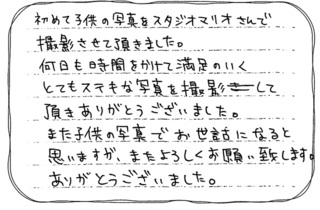 初めて子供の写真をスタジオマリオさんで
撮影させて頂きました。
何日も時間をかけて満足のいく
とてもステキな写真を撮影して
頂きありがとうございました。
また子供の写真でお世話になると
思いますが、またよろしくお願い致します。
ありがとうございました。